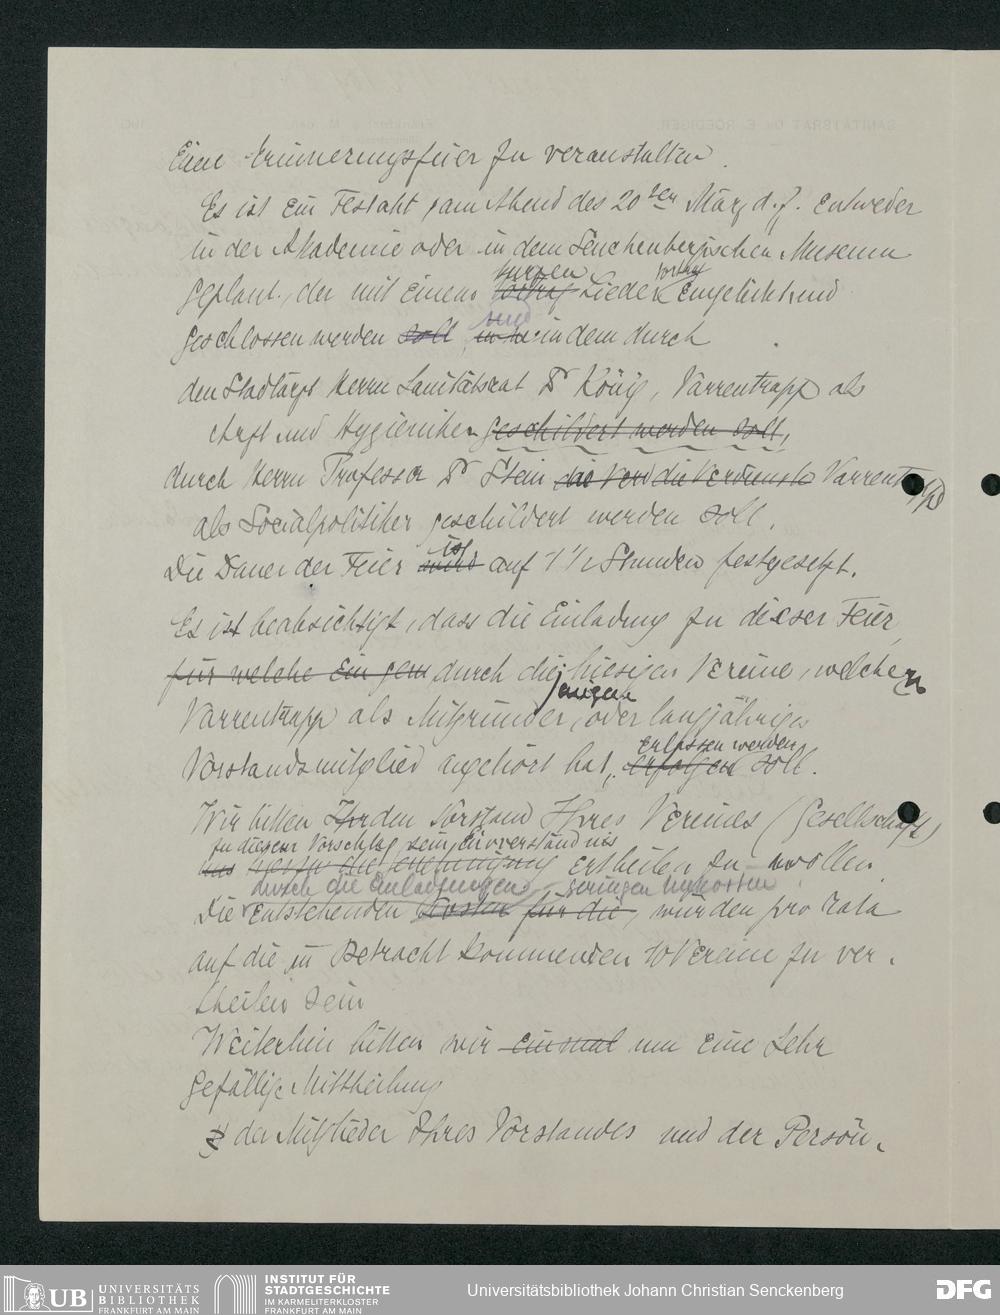 Eine Erinnerungsfeier zu veranstalten.
Es ist ein Festakt am Abend des 20ten März d. J. entweder
in der Akademie oder in dem Senckenbergischen Museum
kurzen vortrag
geplant, der mit einem Lieder eingeleitet und
und
geschlossen werden soll, in dem durch
den Stadtarzt Herrn Sanitätsrat Dr König, Varrentrapp als
Arzt und Hygieniker geschildert werden soll,
durch Herrn Professor Dr Stein die Verd die Verdienste Varrentrapp
als Socialpolitiker geschildert werden soll.
ist
Die Dauer der Feier wird auf 1 1/2 Stunden festgesetzt.
Es ist beabsichtigt, dass die Einladung zu dieser Feier,
für welche Ein gem durch die hiesigen Vereine, welchen
jenigen
Varrentrapp als Mitgründer, oder langjähriges
erlassen werden
Vorstandsmitglied angehört hat, erfolgen soll.
Wir bitten Ihr den Vorstand Ihres Vereines (Gesellschaft)
zu diesem Vorschlag sein Einverständnis
uns hierzu die Genehmigung ertheilen zu wollen.
durch die Einladungen geringen Unkosten
Die Entstehenden Kosten für die, würden pro rata
auf die in Betracht kommenden 10 Vereine zu ver-
theilen sein
Weiterhin bitten wir einmal um eine Sehr
gefällige Mittheilung
der Mitglieder Ihres Vorstandes und der Persön-
UB UNIVERSITÄTS
BIBLIOTHEK
FRANKFURT AM MAIN
INSTITUT FÜR
STADTGESCHICHTE
IM KARMELITERKLOSTER
FRANKFURT AM MAIN
Universitätsbibliothek Johann Christian Senckenberg
DFG